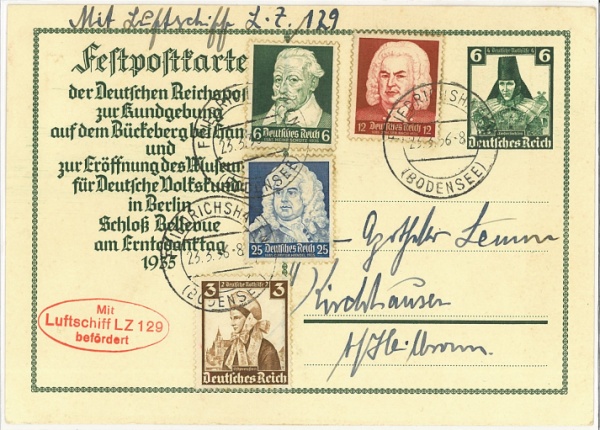 Mit Luftschiff L.Z. 129
Festpostkarte
der Deutschen Reichspos
zur Kundgebung
auf dem Bückeberg bei Ham
und
zur Eröffnung des Museum
für Deutsche Volkskund
in Berlin
Schloß Bellevue
am Erntedanktag
1935
6 Deutsches Reich 6
12 Deutsches Reich 12
25 Deutsches Reich 25
3 3
Deutsches Reich
6 6
Deutsches Reich
FRIEDRICHSHA
23.3.36-8
(BODENSEE)
FRIEDRICHSHA
23.3.36-8
(BODENSEE)
Mit
Luftschiff LZ 129
befördert
Apotheker
Kirchhausen
a/Heilbronn.